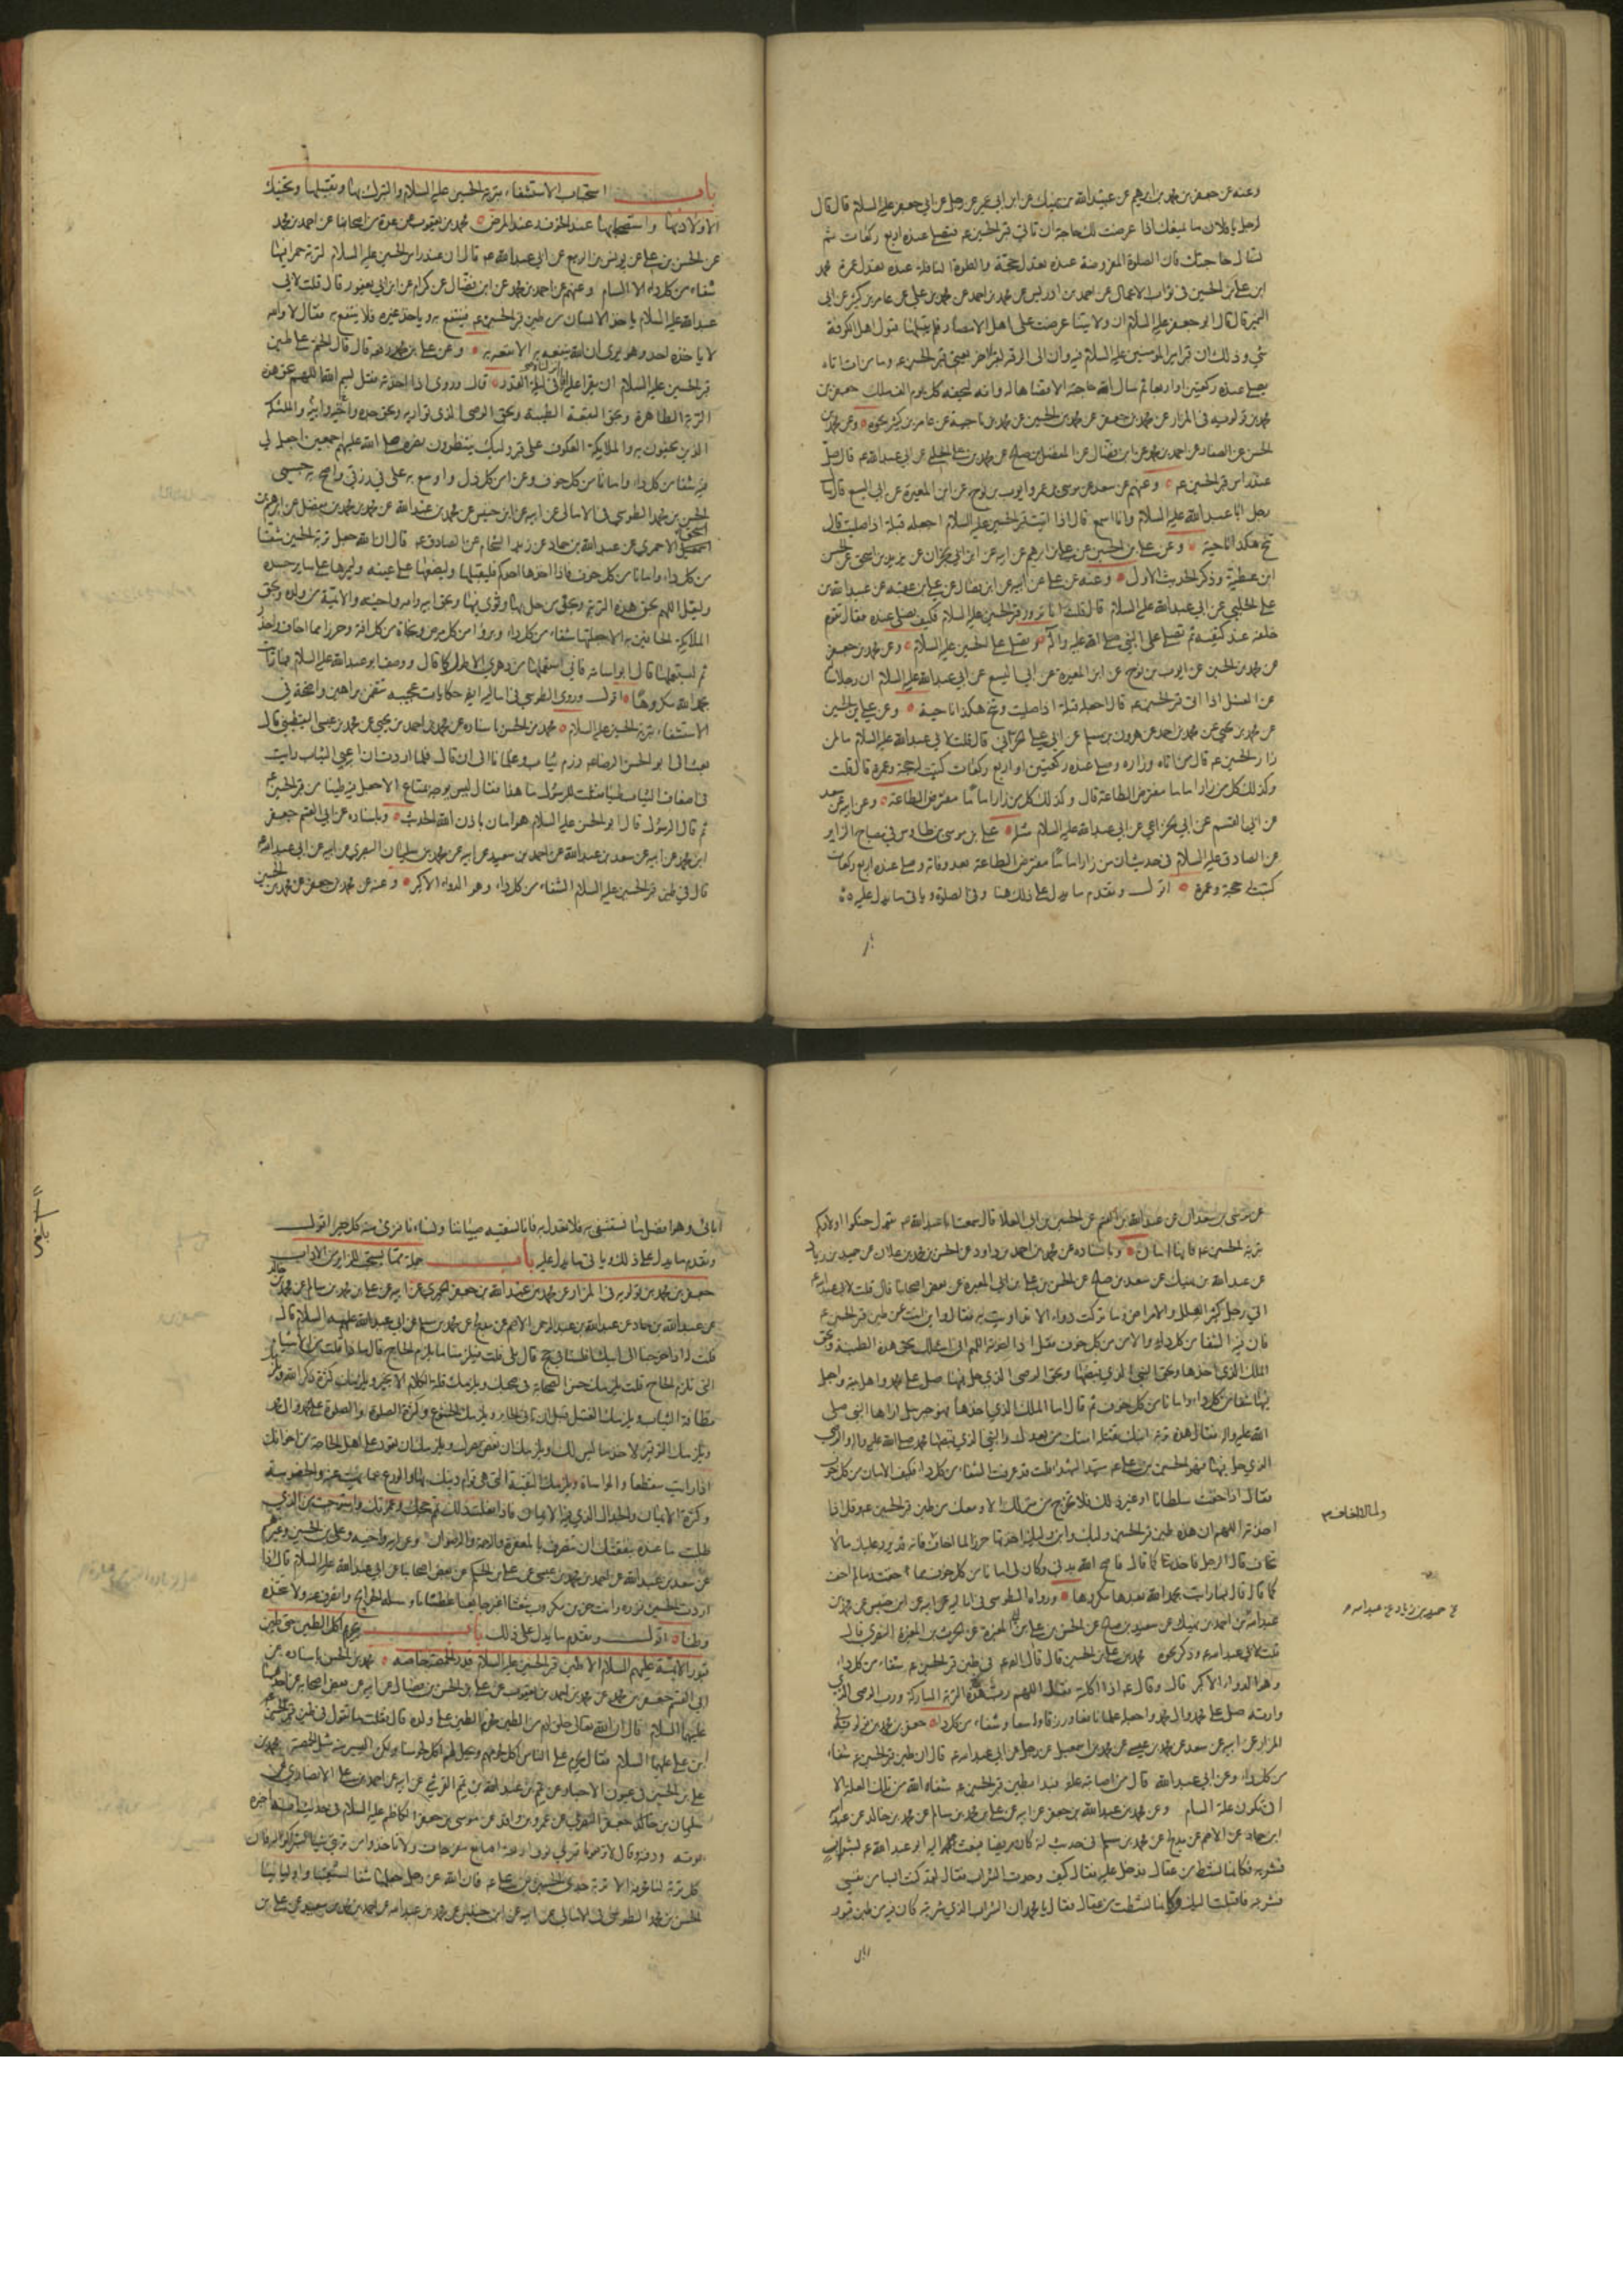 وعنه عن جعفر بن محمد بن ابرهيم عن عبيد الله بن نهيك عن ابن ابي عمير عن رجل عن ابي جعفر عليه السلام قال قال
لرجل يا فلان ما يمنعك اذا عرضت لك حاجة ان تاتي قبر الحسين ع فتصلي عنده اربع ركعات ثم
تسال حاجتك فان الصلوة المفروضة عنده تعدل حجة والصلوة النافلة عنده تعدل عمرة محمد
ابن علي بن الحسين في ثواب الاعمال عن احمد بن ادريس عن محمد بن احمد عن محمد بن علي عن عامر بن كثير عن ابي
النمير قال قال ابو جعفر عليه السلام ان ولايتنا عرضت على اهل الامصار فلم يقبلها قبول اهل الكوفة
شي وذلك ان قبر امير المومنين عليه السلام فيه وان الى لزقه لقبر اخر يعني قبر الحسين ع وما من ات اتاه
يصلي عنده ركعتين او اربعا ثم سال الله حاجته الا قضاها له وانه ليحفه كل يوم الف ملك جعفر بن
محمد بن قولويه في المزار عن محمد بن جعفر عن محمد بن الحسين عن محمد بن ناجية عن عامر بن كثير نحوه وعن محمد بن
الحسن عن الصفار عن احمد بن محمد عن ابن فضال عن المفضل بن صالح عن محمد بن علي الحلبي عن ابي عبد الله ع قال صل
عند راس قبر الحسين ع وعنهم عن سعد عن موسى بن عمر وايوب بن نوح عن ابن المغيرة عن ابي اليسع قال سال
رجل ابا عبد الله عليه السلام وانا اسمع قال اذا اتيت قبر الحسين عليه السلام اجعله قبلة اذا صليت قال
تنح هكذا ناحية وعن علي بن الحسين عن علي بن ابرهيم عن ابيه عن ابن ابي نجران عن يزيد بن اسحق عن الحسن
ابن عطية وذكر الحديث الاول وعنه عن علي عن ابيه عن ابن فضال عن علي بن عقبة عن عبيد الله بن
علي الحلبي عن ابي عبد الله عليه السلام قال قلت انا نزور قبر الحسين عليه السلام فكيف نصلي عنده فقال تقوم
خلفه عند كتفيه ثم تصلي على النبي صلى الله عليه واله وتصلي على الحسين عليه السلام وعن محمد بن جعفر
عن محمد بن الحسين عن ايوب بن نوح عن ابن المغيرة عن ابي اليسع عن ابي عبد الله عليه السلام ان رجلا سا
عن الغسل اذا اتى قبر الحسين ع قال اجعله قبلة اذا صليت وتنح هكذا ناحية وعن علي بن الحسين
عن محمد بن يحيى عن محمد بن احمد عن هرون بن مسلم عن ابي علي الحراني قال قلت لابي عبد الله عليه السلام ما لمن
زار الحسين ع قال من اتاه وزاره وصلى عنده ركعتين او اربع ركعات كتبت له حجة وعمرة قال قلت
وكذلك كل من زار اماما مفترض الطاعة قال وكذلك كل من زار اماما مفترض الطاعة وعن ابيه عن سعد
عن ابي القسم عن ابي علي الخزاعي عن ابي عبد الله عليه السلام مثله علي بن موسى بن طاوس في مصباح الزاير
عن الصادق عليه السلام في حديث ان من زار اماما مفترض الطاعة بعد وفاته وصلى عنده اربع ركعات
كتبت له حجة وعمرة اقول وتقدم ما يدل على ذلك هنا وفي الصلوة وياتي ما يدل عليه
باب استحباب الاستشفاء بتربة الحسين عليه السلام والتبرك بها وتقبيلها وتحنيك
الاولاد بها واستصحابها عند الخوف وعند المرض محمد بن يعقوب عن عدة من اصحابنا عن احمد بن محمد
عن الحسن بن علي عن يونس بن الربيع عن ابي عبد الله ع قال ان عند راس الحسين عليه السلام لتربة حمرا فيها
شفاء من كل داء الا السام وعنهم عن احمد بن محمد عن ابن فضال عن كرام عن ابن ابي يعفور قال قلت لابي
عبد الله عليه السلام ياخذ الانسان من طين قبر الحسين ع فينتفع به وياخذ غيره فلا ينتفع به فقال لا والله
لا ياخذه احد وهو يرى ان الله ينفعه به الا نفعه به وعن علي بن محمد رفعه قال قال الختم على طين
قبر الحسين عليه السلام ان يقرا عليه انا انزلناه في ليلة القدر قال وروي اذا اخذته فقل بسم الله اللهم بحق هذه
التربة الطاهرة وبحق البقعة الطيبة وبحق الوصي الذي تواريه وبحق جده وابيه وامه واخيه والملئكة
الذين يحفون به والملايكة العكوف على قبر وليك ينتظرون نصره صلى الله عليهم اجمعين اجعل لي
فيه شفا من كل داء وامانا من كل خوف وعزا من كل ذل واوسع به علي في رزقي واصح به جسمي
الحسن بن محمد الطوسي في الامالي عن ابيه عن ابن خنيس عن محمد بن عبد الله عن محمد بن محمد بن مفضل عن ابرهيم بن
اسحق الاحمري عن عبد الله بن حماد عن زيد الشحام عن الصادق ع قال ان الله جعل تربة الحسين شفا
من كل داء وامانا من كل خوف فاذا اخذها احدكم فليقبلها وليضعها على عينيه وليمرها على ساير جسده
وليقل اللهم بحق هذه التربة وبحق من حل بها وثوى فيها وبحق ابيه وامه واخيه والائمة من ولده وبحق
الملايكة الحافين به الا جعلتها شفاء من كل داء وبرؤا من كل مرض ونجاة من كل افة وحرزا مما اخاف واحذر
ثم ليستعملها قال ابو اسامة فاني استعملتها من دهري الاطول كما قال ووصف ابو عبد الله عليه السلام فما رايت
بحمد الله مكروها اقول وروى الطوسي في اماليه ايضا حكايات عجيبة تتضمن براهين واضحة في
الاستشفاء بتربة الحسين عليه السلام محمد بن الحسن باسناده عن محمد بن احمد بن يحيى عن محمد بن عيسى اليقطيني قال
بعث الي ابو الحسن الرضا ع رزم ثياب وغلمانا الى ان قال فلما اردت ان اعبي الثياب رايت
في اضعاف الثياب طينا فقلت للرسول ما هذا فقال ليس يوجه بمتاع الا جعل فيه طينا من قبر الحسين ع
ثم قال الرسول قال ابو الحسن عليه السلام هو امان باذن الله الحديث وباسناده عن ابي القسم جعفر
ابن محمد عن ابيه عن سعد بن عبد الله عن احمد بن سعيد عن ابيه عن محمد بن سليمان البصري عن ابيه عن ابي عبد الله ع
قال في طين قبر الحسين عليه السلام الشفاء من كل داء وهو الدواء الاكبر وعنه عن محمد بن جعفر عن محمد بن الحسين
عن موسى بن سعدان عن عبد الله بن القسم عن الحسين بن ابي العلا قال سمعت ابا عبد الله ع يقول حنكوا اولادكم
بتربة الحسين ع فانها امان وباسناده عن محمد بن احمد بن داود عن الحسن بن محمد بن علان عن حميد بن زياد
عن عبد الله بن نهيك عن سعد بن صالح عن الحسن بن علي بن ابي المغيرة عن بعض اصحابنا قال قلت لابي عبد الله ع
اني رجل كثير العلل والامراض وما تركت دواء الا تداويت به فقال لي واين انت عن طين قبر الحسين ع
فان فيه الشفا من كل داء والامن من كل خوف فقل اذا اخذته اللهم اني اسئلك بحق هذه الطينة وبحق
الملك الذي اخذها وبحق النبي الذي قبضها وبحق الوصي الذي حل فيها صل على محمد واهل بيته واجعل
فيها شفا من كل داء وامانا من كل خوف ثم قال اما الملك الذي اخذها فهو جبرئيل اراها النبي صلى
الله عليه واله فقال هذه تربة ابنك تقتله امتك من بعدك والنبي الذي قبضها محمد صلى الله عليه واله والوصي
الذي حل فيها فهو الحسين بن علي ع سيد الشهداء قلت قد عرفت الشفا من كل داء فكيف الامان من كل خوف
فقال اذا خفت سلطانا او غير ذلك فلا تخرج من منزلك الا ومعك من طين قبر الحسين ع وقل اذا
اخذته اللهم ان هذه طينة قبر الحسين وليك وابن وليك اخذتها حرزا لما اخاف
ولما لا اخاف
فانه قد يرد عليك ما لا
تخاف قال الرجل فاخذتها كما قال فاصح الله بدني وكان لي امانا من كل خوف مما خفت وما لم اخف
كما قال قال فما رايت بحمد الله بعدها مكروها ورواه الطوسي في اماليه عن ابيه عن ابن خنيس عن محمد بن
عبد الله
عن حميد بن زياد عن عبد الله
بن احمد بن نهيك عن سعيد بن صالح عن الحسن بن علي بن ابي المغيرة عن الحرث بن المغيرة النضري قال
قلت لابي عبد الله ع وذكر نحوه محمد بن علي بن الحسين قال قال ع في طين قبر الحسين ع شفاء من كل داء
وهو الدواء الاكبر قال وقال ع اذا اكلته فقل اللهم رب هذه التربة المباركة ورب الوصي الذي
وارته صل على محمد وال محمد واجعله علما نافعا ورزقا واسعا وشفاء من كل داء جعفر بن محمد بن قولويه في
المزار عن ابيه عن سعد عن محمد بن عيسى عن محمد بن اسمعيل عن رجل عن ابي عبد الله ع قال ان طين قبر الحسين ع شفاء
من كل داء وعن ابي عبد الله قال من اصابته علة فبدا بطين قبر الحسين ع شفاه الله من تلك العلة الا
ان تكون علة السام وعن محمد بن عبد الله بن جعفر عن ابيه عن علي بن محمد بن سالم عن محمد بن خالد عن عبد الله
ابن حماد عن الاصم عن مدلج عن محمد بن مسلم في حديث انه كان مريضا فبعث اليه ابو عبد الله ع بشراب
فشربه فكانما نشط من عقال فدخل عليه فقال كيف وجدت الشراب فقال لقد كنت ايسا من نفسي
فشربته فاقبلت اليك وكانما نشطت من عقال فقال يا محمد ان الشراب الذي شربته كان فيه من طين قبور
ابائي وهو افضل ما نستشفي به فلا تعدل به فانا نسقيه صبياننا ونساءنا فنرى فيه كل خير اقول
وتقدم ما يدل على ذلك وياتي ما يدل عليه باب جملة مما يستحب للزاير من الاداب
جعفر بن محمد بن قولويه في المزار عن محمد بن عبد الله بن جعفر الحميري عن ابيه عن علي بن محمد بن سالم عن محمد بن خالد
عن عبد الله بن حماد عن عبد الله بن عبد الرحمن الاصم عن مدلج عن محمد بن مسلم عن ابي عبد الله عليه السلام قال
قلت له اذا خرجنا الى ابيك افلسنا في حج قال بلى قلت فيلزمنا ما يلزم الحاج قال ماذا قلت من الاشياء
التي تلزم الحاج قال يلزمك حسن الصحابة لمن صحبك ويلزمك قلة الكلام الا بخير ويلزمك كثرة ذكر الله ويلزمك
نظافة الثياب ويلزمك الغسل قبل ان تاتي الحاير ويلزمك الخشوع وكثرة الصلوة والصلوة على محمد وال محمد
ويلزمك التوقير لاخذ ما ليس لك ويلزمك ان تغض بصرك ويلزمك ان تعود على اهل الحاجة من اخوانك
اذا رايت منقطعا والمواساة ويلزمك التقية التي هي قوام دينك بها والورع عما نهيت عنه والخصومة
وكثرة الايمان والجدال الذي فيه الايمان فاذا فعلت ذلك تم حجك وعمرتك واستوجبت من الذي
طلبت ما عنده بنفقتك ان تنصرف بالمغفرة والرحمة والرضوان وعن ابيه واخيه وعلي بن الحسين وغيرهم
عن سعد بن عبد الله عن احمد بن محمد بن عيسى عن علي بن الحكم عن بعض اصحابنا عن ابي عبد الله عليه السلام قال اذا
اردت الحسين فزره وانت حزين مكروب شعثا مغبرا جايعا عطشانا وسله الحوائج وانصرف عنه ولا تتخذه
وطنا اقول وتقدم ما يدل على ذلك باب تحريم اكل الطين حتى طين
قبور الائمة عليهم السلام الا طين قبر الحسين عليه السلام قدر الحمصة خاصة محمد بن الحسن باسناده عن
ابي القسم جعفر بن محمد عن محمد بن احمد بن يعقوب عن علي بن الحسن بن فضال عن ابيه عن بعض اصحابه عن احدهما
عليهما السلام قال ان الله تعالى خلق ادم من الطين فحرم الطين على ولده قال فقلت ما تقول في طين قبر الحسين
ابن علي عليهما السلام فقال يحرم على الناس اكل لحومهم ويحل لهم اكل لحومنا ولكن اليسير منه مثل الحمصة محمد بن
علي بن الحسين في عيون الاخبار عن تميم بن عبد الله بن تميم القرشي عن ابيه عن احمد بن علي الانصاري عن
سليمان بن جعفر البصري عن عمرو بن واقد عن موسى بن جعفر الكاظم عليه السلام في حديث انه اخبره
بموته ودفنه وقال لا ترفعوا قبري فوق اربعة اصابع مفرجات ولا تاخذوا من تربتي شيئا لتبركوا به فان
كل تربة لنا محرمة الا تربة جدي الحسين بن علي ع فان الله عز وجل جعلها شفا لشيعتنا واوليائنا
الحسن بن محمد الطوسي في الامالي عن ابيه عن ابن خنيس عن محمد بن عبد الله عن احمد بن محمد بن سعيد عن علي بن